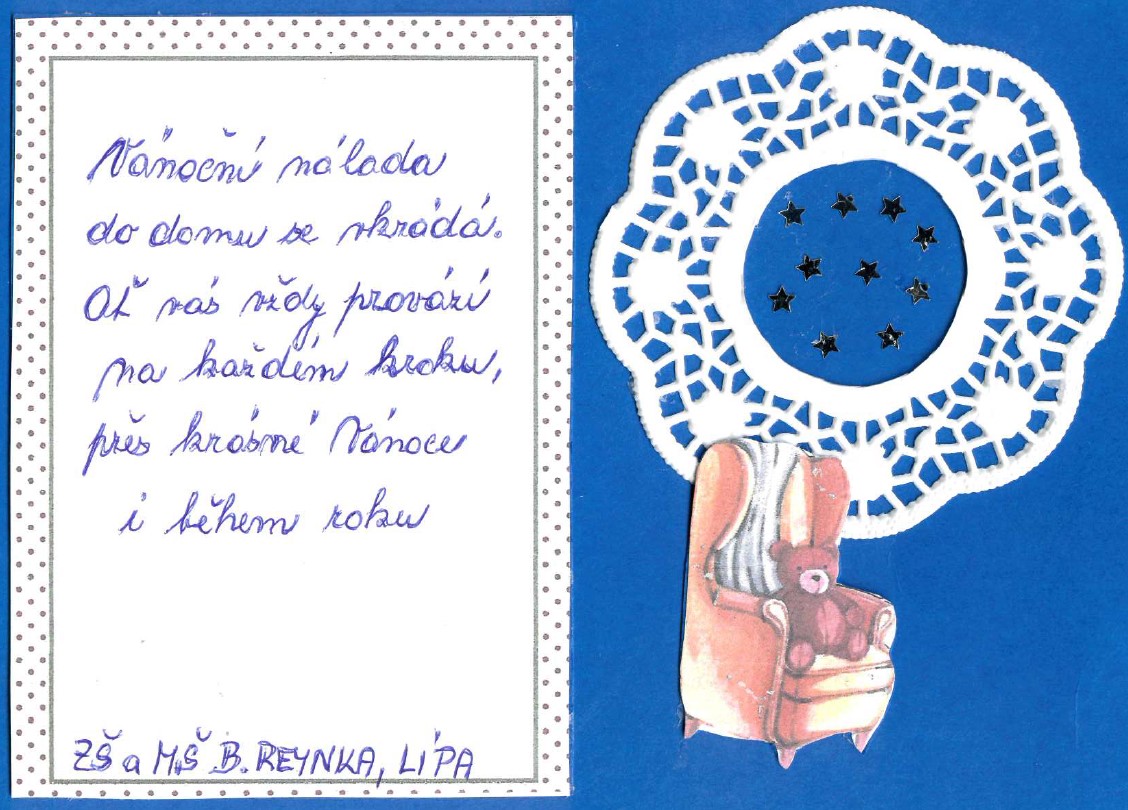 Vánoční nálada
do domu se vkrádá.
Ať vás vždy provází
na každém kroku,
přes krásné Vánoce
i během roku
ZŠ a MŠ B. REYNKA, LÍPA